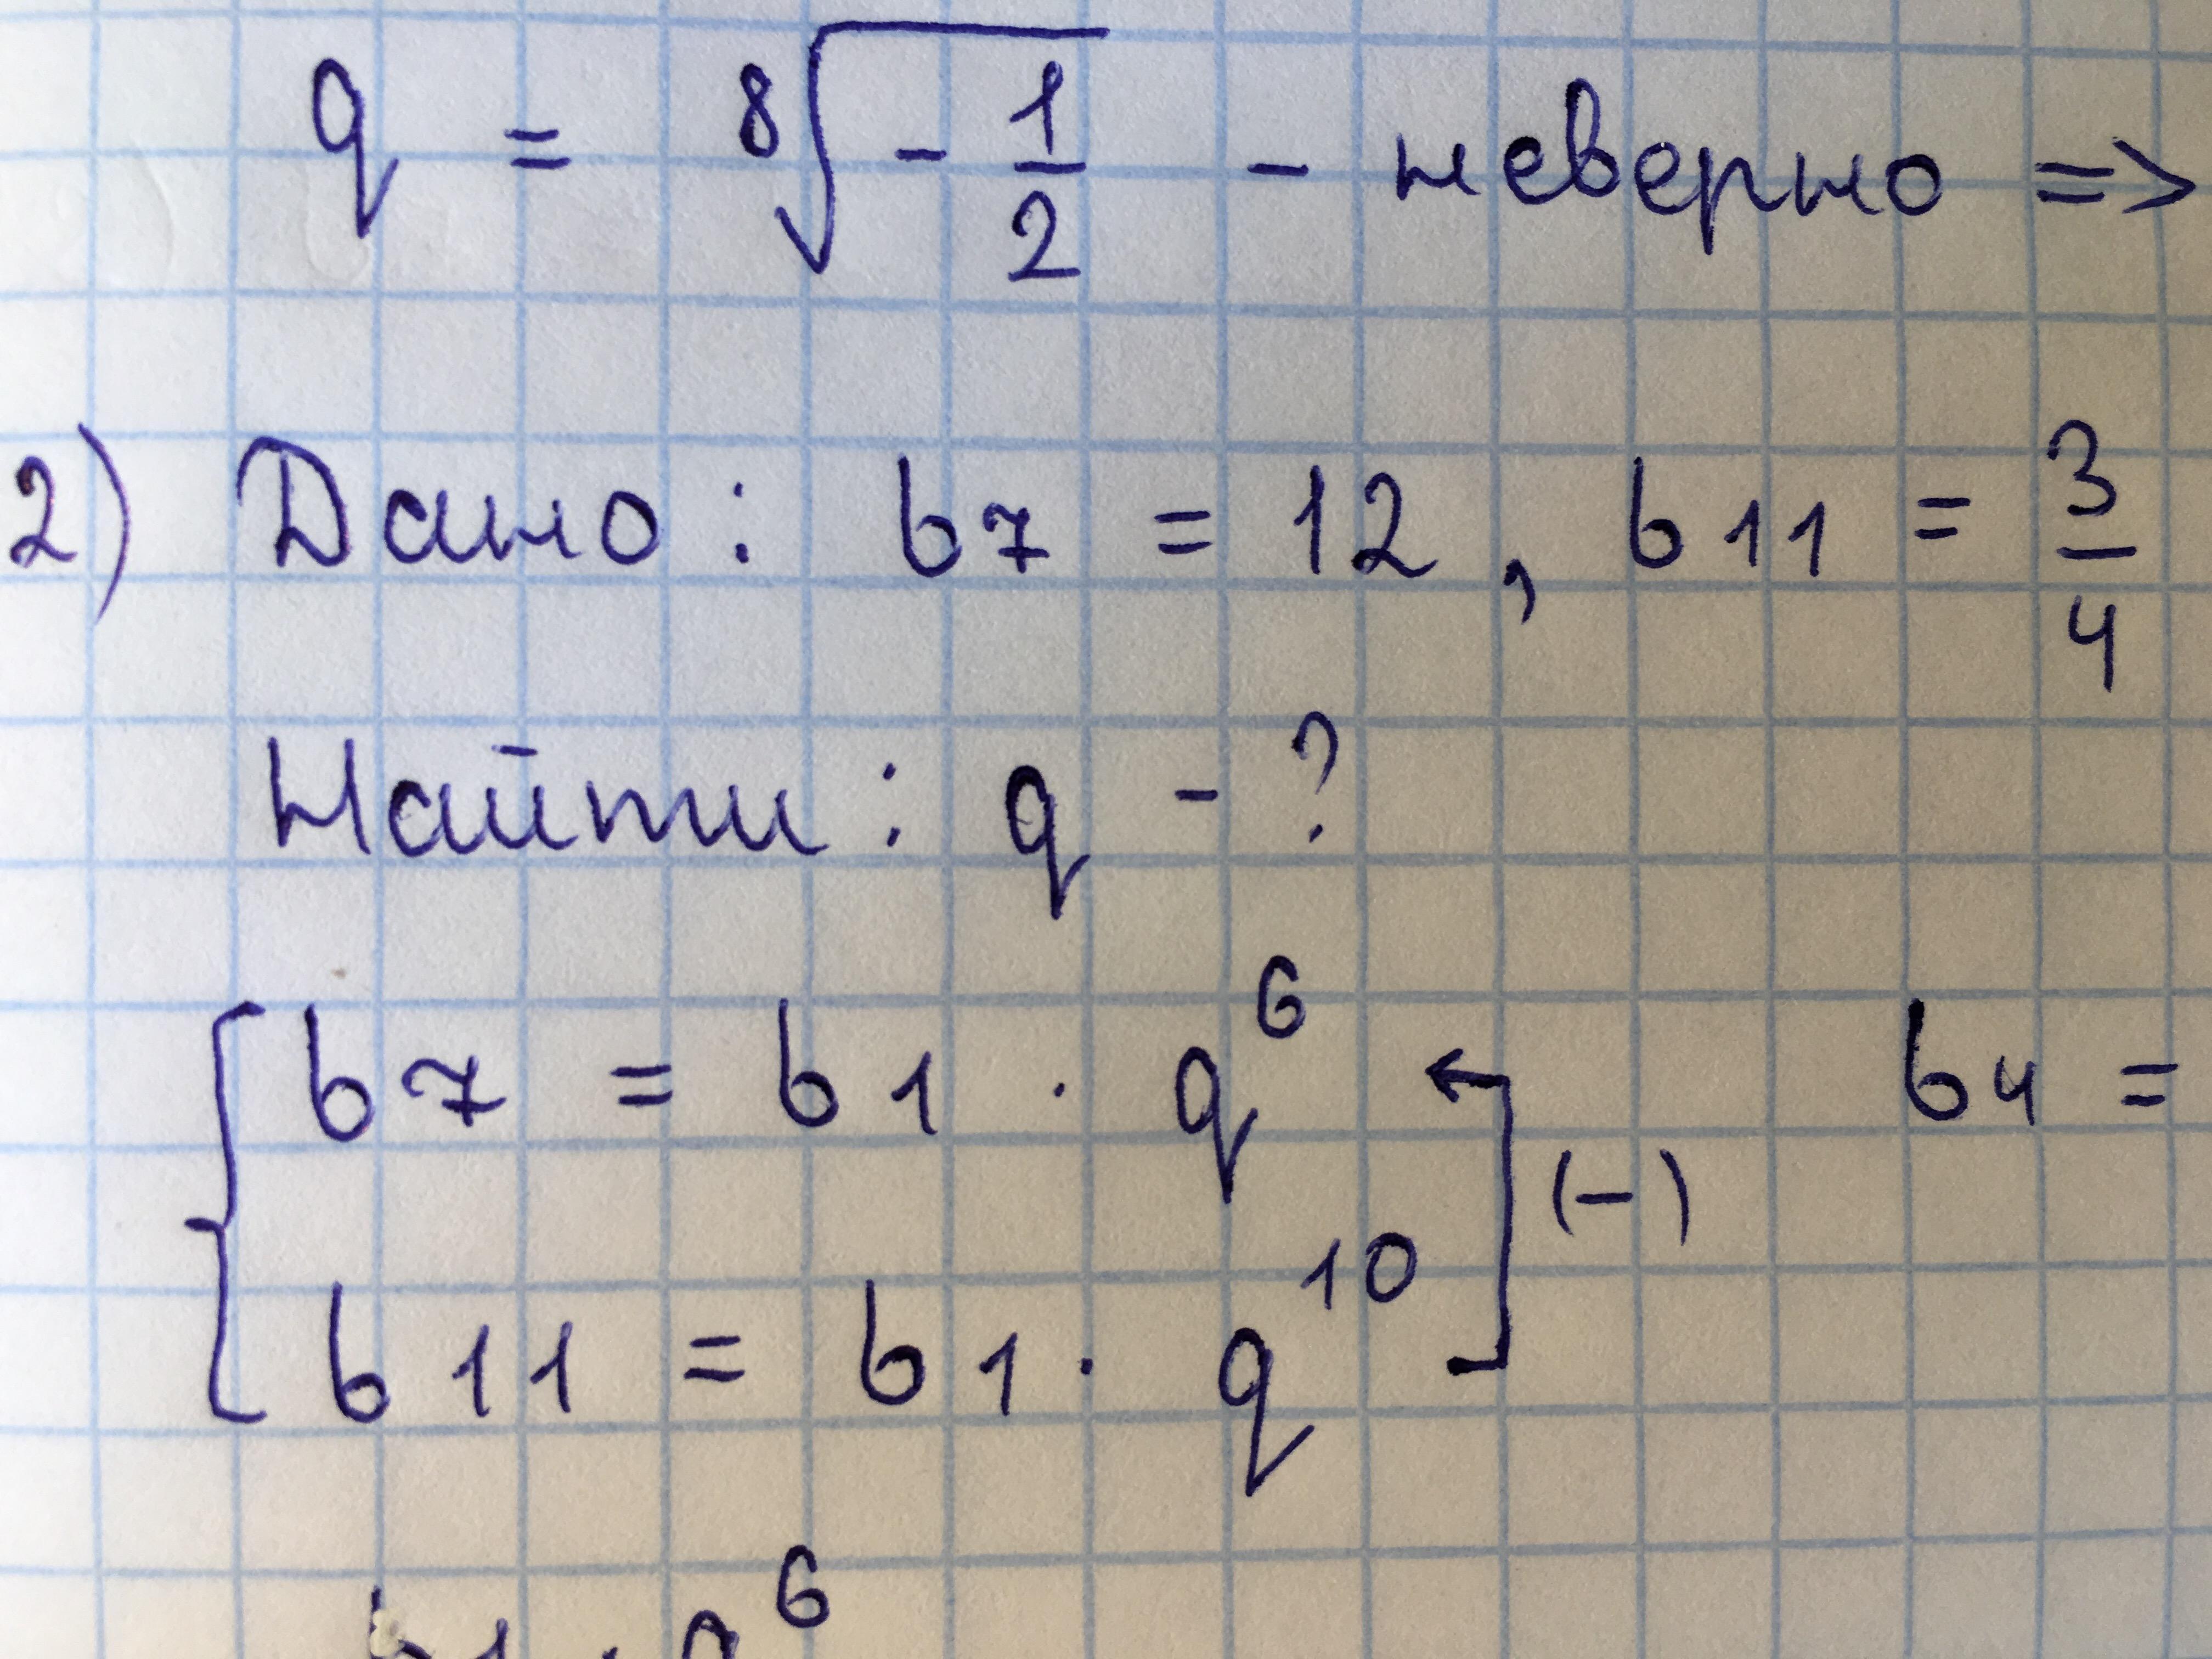 q = ⁸√-1/2 - неверно =>
2) Дано: b7 = 12, b11 = 3/4
Найти: q - ?
b7 = b1 · q⁶ (-) b4 =
b11 = b1 · q¹⁰
b1 · q⁶